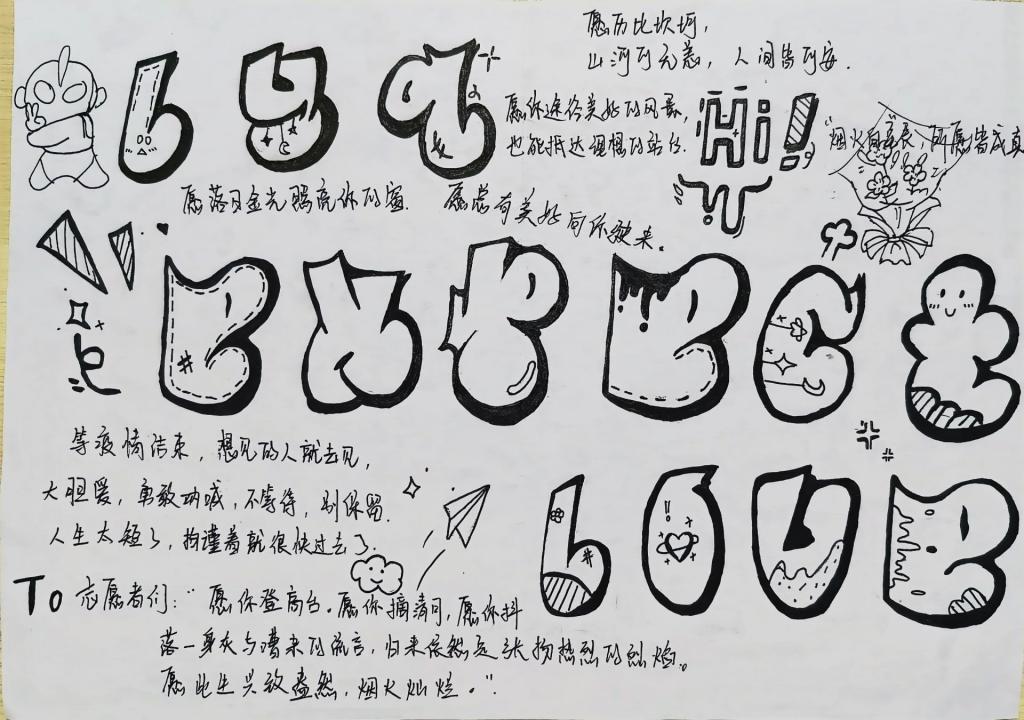 愿历比坎坷,
山河可无恙，人间皆可安.
愿你途径美好的风景,
也能抵达理想的站台.
Hi!
“烟火向星辰，所愿皆成真
愿落日金光照亮你的窗.
愿总有美好向你驶来。
EXPECT
等疫情结束，想见的人就去见,
大胆爱，勇敢呐喊，不等待，别保留.
人生太短了，拘谨着就很快过去了.
LOVE
To 志愿者们：“愿你登高台。愿你摘清月，愿你抖
落一身灰与嘈杂的流言，归来依然是张扬热烈的烈焰。
愿此生兴致盎然，烟火灿烂。”.